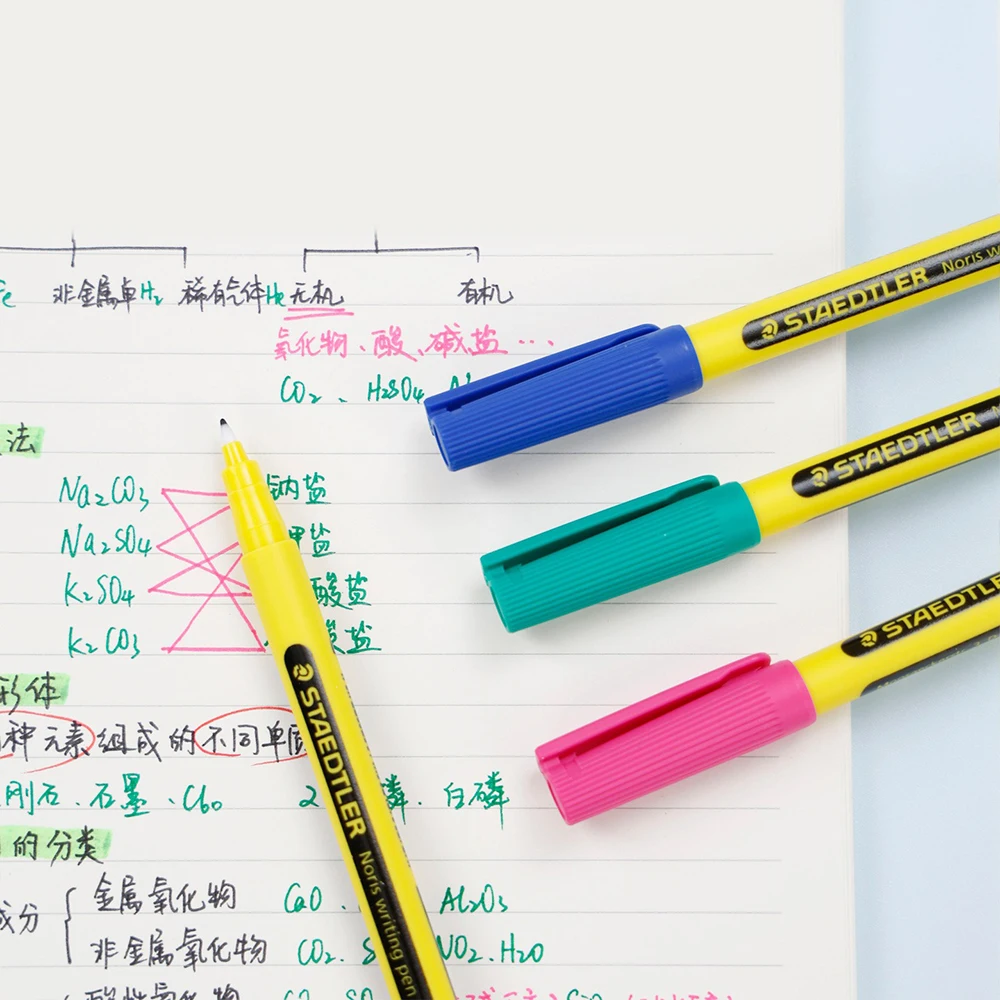 非金属单H₂ 稀有气体He 无机 有机
氧化物、酸、碱、盐...
CO₂、H₂SO₄
法
Na₂CO₃ 钠盐
Na₂SO₄ 盐
K₂SO₄ 酸盐
K₂CO₃ 酸盐
形体
种元素组成的不同单
刚石、石墨、C60 磷、白磷
的分类
成分 金属氧化物 CaO Al₂O₃
非金属氧化物 CO₂ NO₂、H₂O
STAEDTLER Noris
STAEDTLER
STAEDTLE
STAEDTLER Noris writing pen